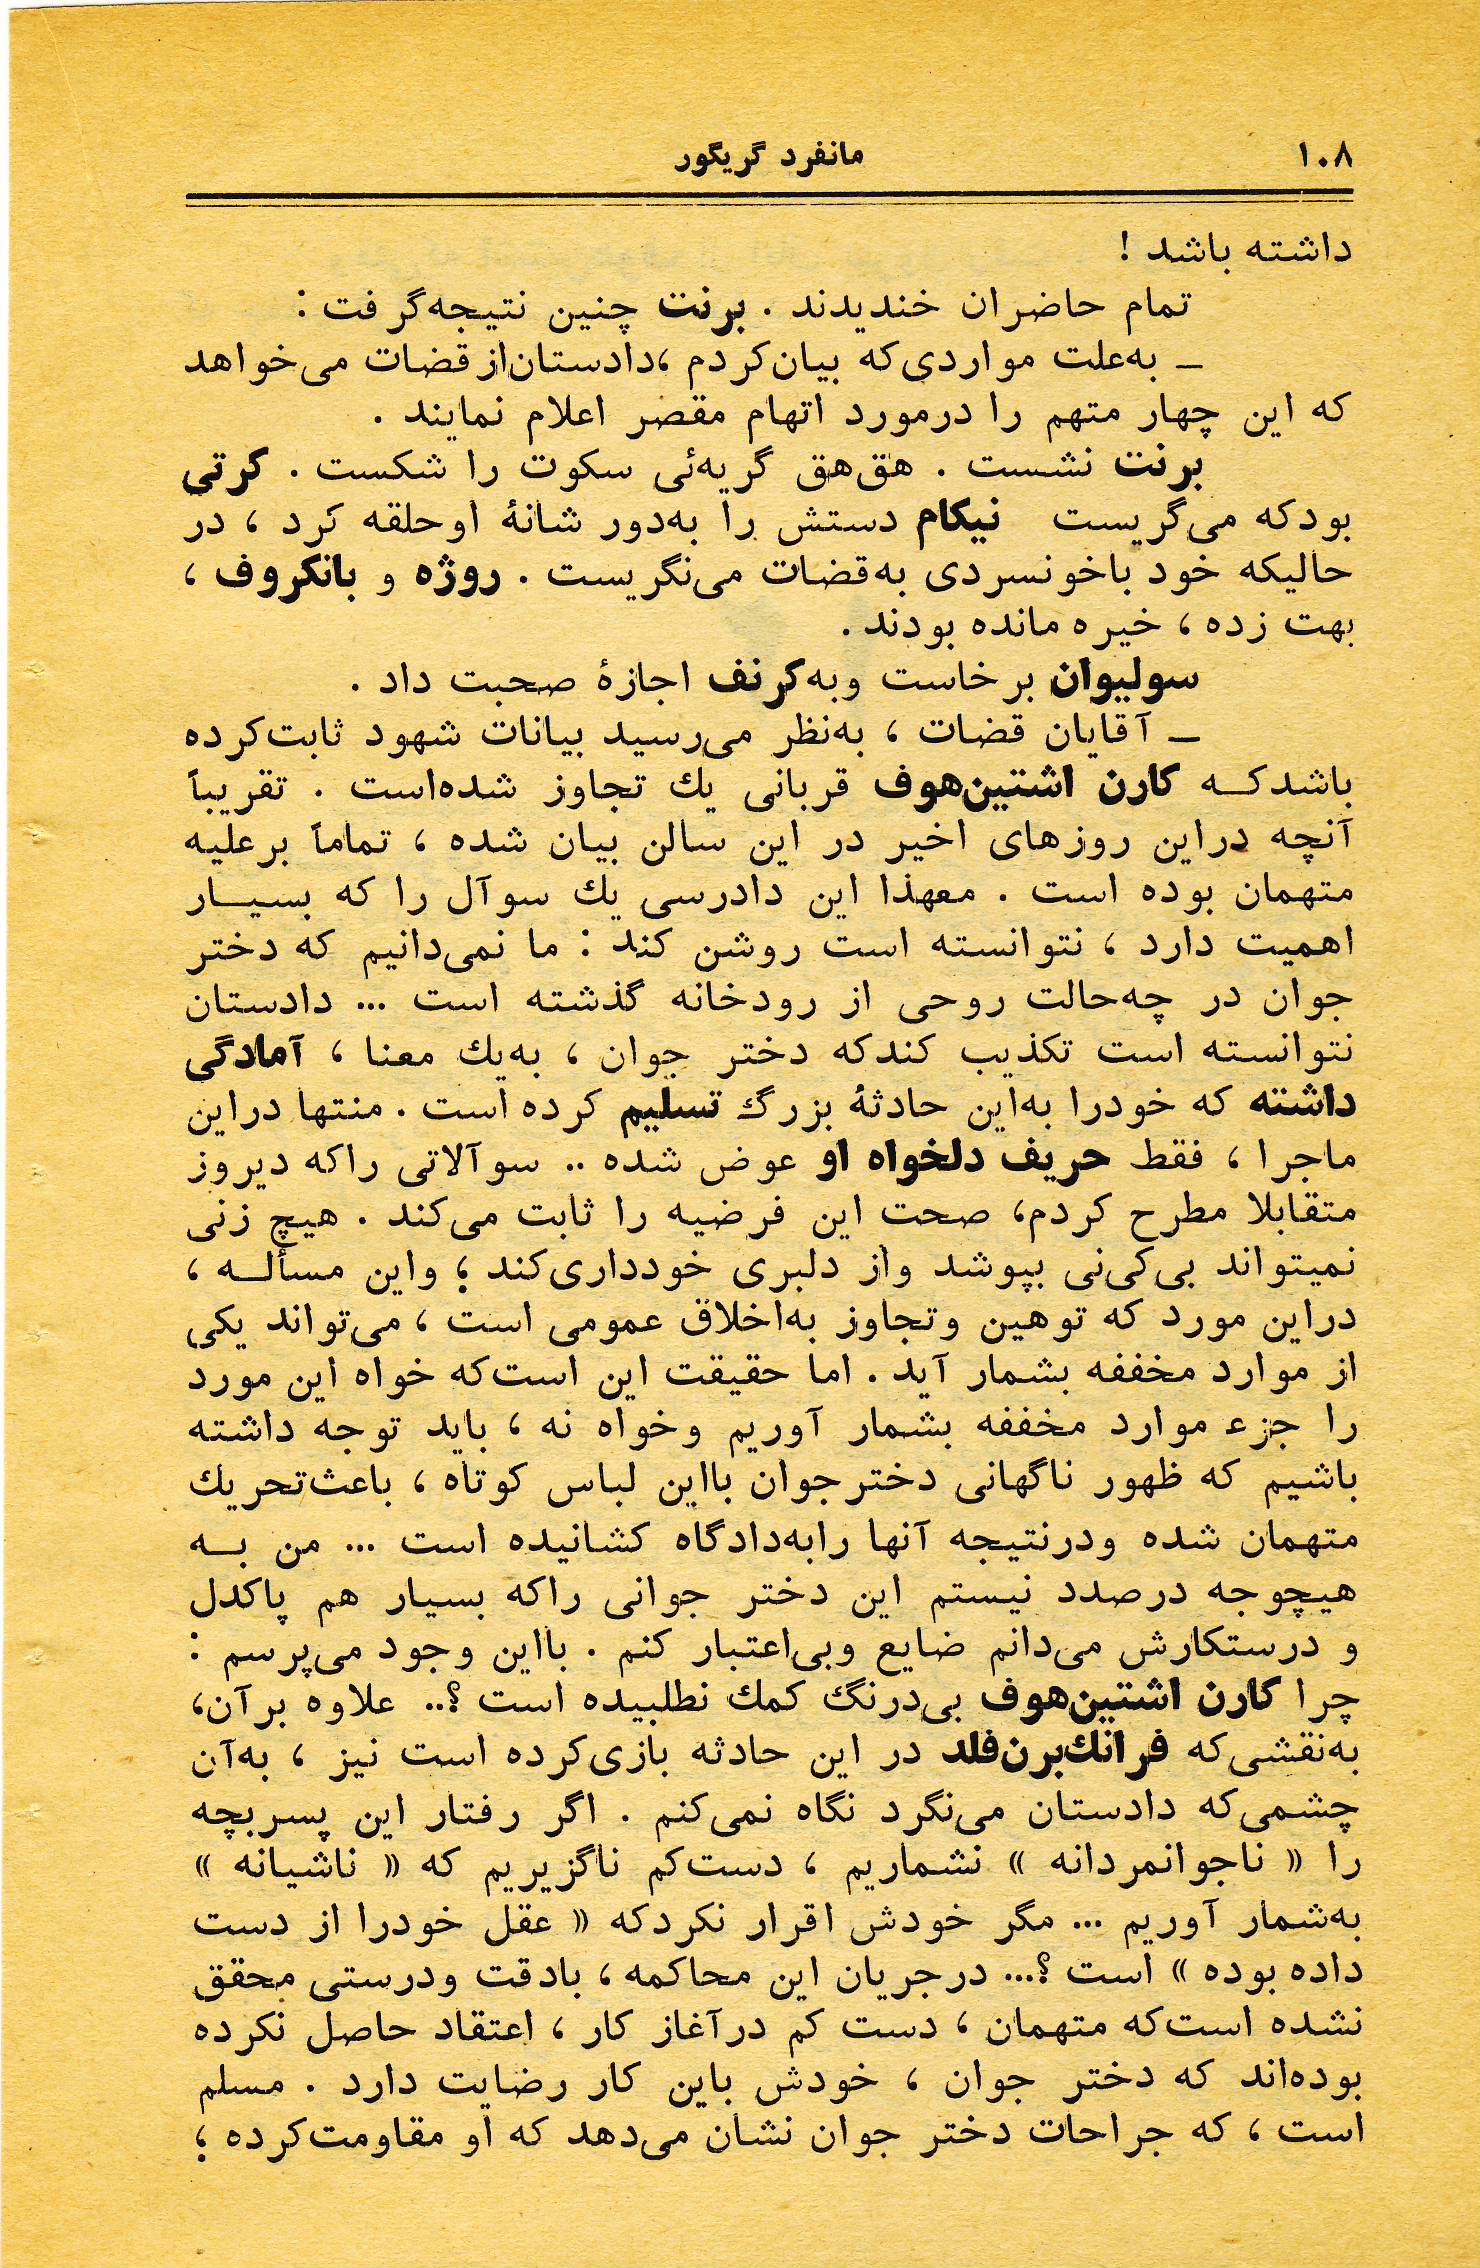 ۱۰۸
مانفرد گریگور
داشته باشد !
تمام حاضران خندیدند . برنت چنین نتیجه‌گرفت :
ـ به‌علت مواردی‌که بیان‌کردم ،دادستان‌از قضات می‌خواهد
که این چهار متهم را درمورد اتهام مقصر اعلام نمایند .
برنت نشست . هق‌هق گریه‌ئی سکوت را شکست . کرتی
بودکه می‌گریست نیکام دستش را به‌دور شانهٔ اوحلقه کرد ، در
حالیکه خود باخونسردی به‌قضات می‌نگریست . روژه و بانکروف ،
بهت زده ، خیره مانده بودند .
سولیوان برخاست وبه‌کرنف اجازهٔ صحبت داد .
ـ آقایان قضات ، به‌نظر می‌رسید بیانات شهود ثابت‌کرده
باشدکـه کارن اشتین‌هوف قربانی یك تجاوز شده‌است . تقریباً
آنچه دراین روزهای اخیر در این سالن بیان شده ، تماماً برعلیه
متهمان بوده است . معهذا این دادرسی یك سوآل را که بسیـار
اهمیت دارد ، نتوانسته است روشن کند : ما نمی‌دانیم که دختر
جوان در چه‌حالت روحی از رودخانه گذشته است ... دادستان
نتوانسته است تکذیب کندکه دختر جوان ، به‌یك معنا ، آمادگی
داشته که خودرا به‌این حادثهٔ بزرگ تسلیم کرده است . منتها دراین
ماجرا ، فقط حریف دلخواه او عوض شده .. سوآلاتی راکه دیروز
متقابلا مطرح کردم، صحت این فرضیه را ثابت می‌کند . هیچ زنی
نمیتواند بی‌کی‌نی بپوشد واز دلبری خودداری‌کند ؛ واین مسألـه ،
دراین مورد که توهین وتجاوز به‌اخلاق عمومی است ، می‌تواند یکی
از موارد مخففه بشمار آید . اما حقیقت این است‌که خواه این مورد
را جزء موارد مخففه بشمار آوریم وخواه نه ، باید توجه داشته
باشیم که ظهور ناگهانی دخترجوان بااین لباس کوتاه ، باعث‌تحریك
متهمان شده ودرنتیجه آنها رابه‌دادگاه کشانیده است ... من بـه
هیچوجه درصدد نیستم این دختر جوانی راکه بسیار هم پاکدل
و درستکارش می‌دانم ضایع وبی‌اعتبار کنم . بااین وجود می‌پرسم :
چرا کارن اشتین‌هوف بی‌درنگ کمك نطلبیده است ؟.. علاوه برآن،
به‌نقشی‌که فرانك‌برن‌فلد در این حادثه بازی‌کرده است نیز ، به‌آن
چشمی‌که دادستان می‌نگرد نگاه نمی‌کنم . اگر رفتار این پسربچه
را « ناجوانمردانه » نشماریم ، دست‌کم ناگزیریم که « ناشیانه »
به‌شمار آوریم ... مگر خودش اقرار نکردکه « عقل خودرا از دست
داده بوده » است ؟... درجریان این محاکمه ، بادقت ودرستی محقق
نشده است‌که متهمان ، دست کم درآغاز کار ، اعتقاد حاصل نکرده
بوده‌اند که دختر جوان ، خودش باین کار رضایت دارد . مسلم
است ، که جراحات دختر جوان نشان می‌دهد که او مقاومت‌کرده ؛